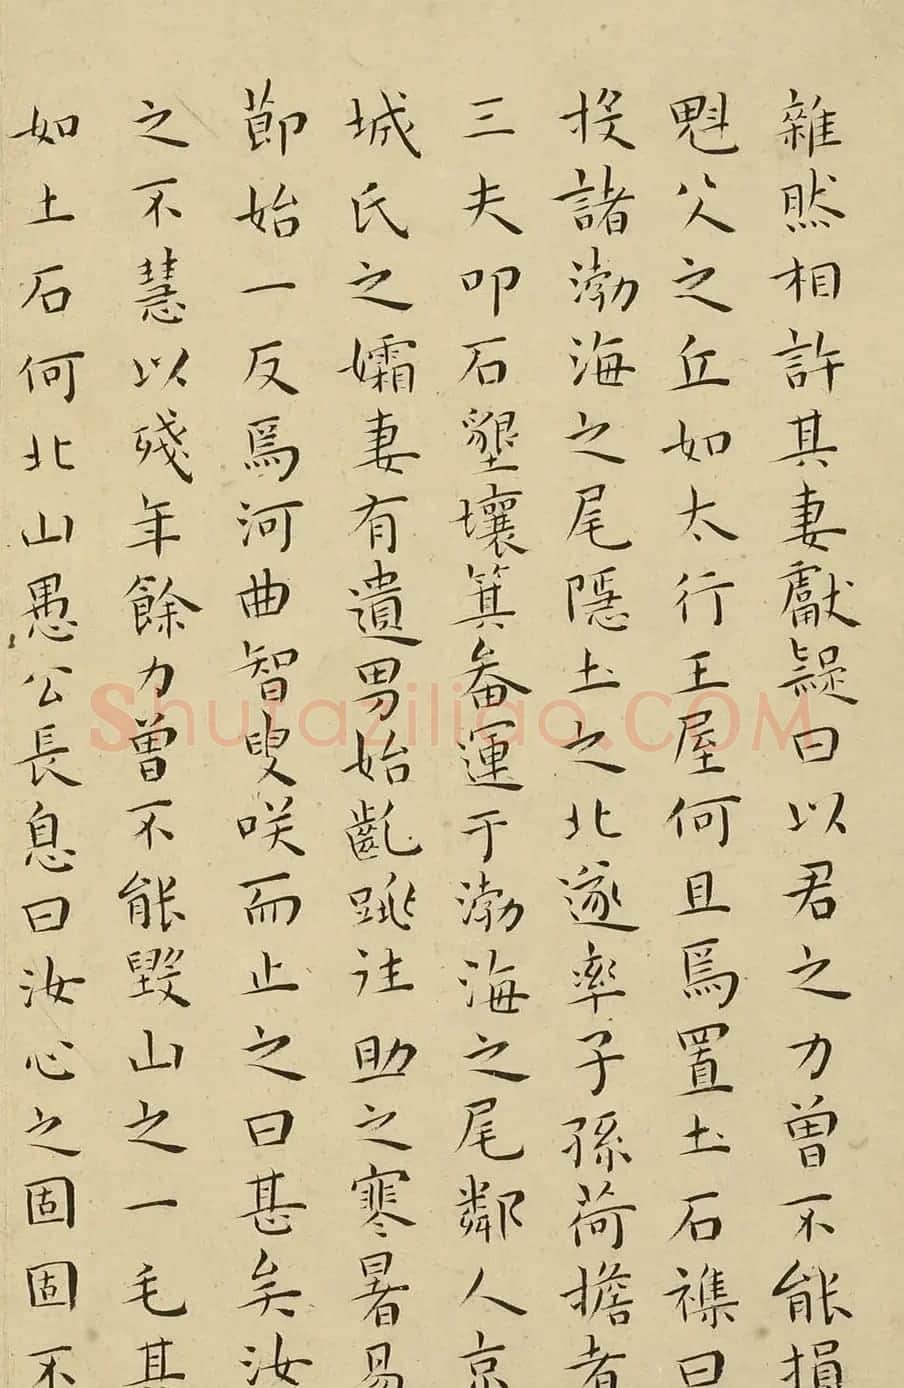 雜然相許其妻獻疑曰以君之力曾不能損
魁父之丘如太行王屋何且焉置土石襍曰
投諸渤海之尾隱土之北遂率子孫荷擔者
三夫叩石墾壤箕畚運于渤海之尾鄰人京
城氏之孀妻有遺男始齔跳往助之寒暑易
節始一反焉河曲智叟咲而止之曰甚矣汝
之不慧以殘年餘力曾不能毀山之一毛其
如土石何北山愚公長息曰汝心之固固不
Shufaziliao.COM